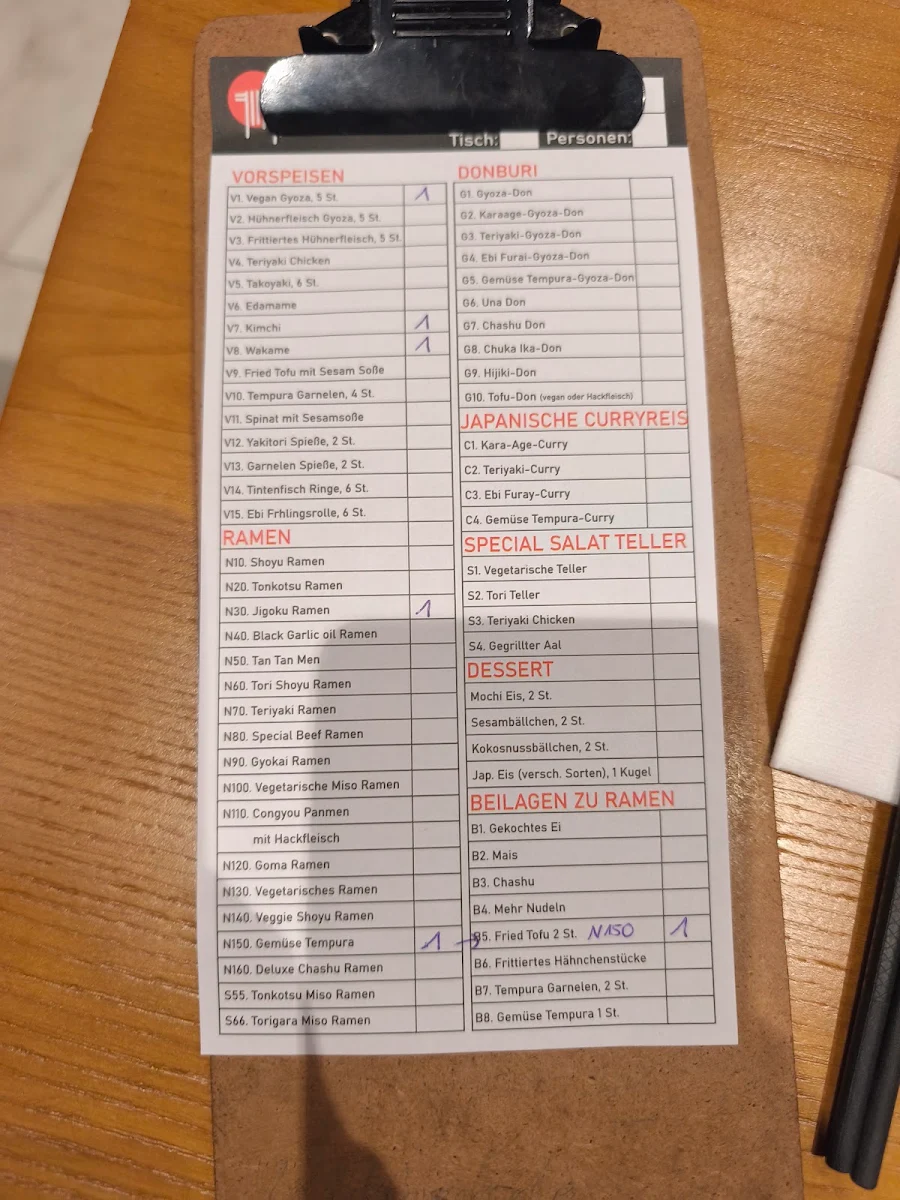 Tisch: Personen:
VORSPEISEN
V1. Vegan Gyoza, 5 St. 1
V2. Hühnerfleisch Gyoza, 5 St.
V3. Frittiertes Hühnerfleisch, 5 St.
V4. Teriyaki Chicken
V5. Takoyaki, 6 St.
V6. Edamame
V7. Kimchi 1
V8. Wakame 1
V9. Fried Tofu mit Sesam Soße
V10. Tempura Garnelen, 4 St.
V11. Spinat mit Sesamsoße
V12. Yakitori Spieße, 2 St.
V13. Garnelen Spieße, 2 St.
V14. Tintenfisch Ringe, 6 St.
V15. Ebi Frhlingsrolle, 6 St.
RAMEN
N10. Shoyu Ramen
N20. Tonkotsu Ramen
N30. Jigoku Ramen 1
N40. Black Garlic oil Ramen
N50. Tan Tan Men
N60. Tori Shoyu Ramen
N70. Teriyaki Ramen
N80. Special Beef Ramen
N90. Gyokai Ramen
N100. Vegetarische Miso Ramen
N110. Congyou Panmen
mit Hackfleisch
N120. Goma Ramen
N130. Vegetarisches Ramen
N140. Veggie Shoyu Ramen
N150. Gemüse Tempura 1 →
N160. Deluxe Chashu Ramen
S55. Tonkotsu Miso Ramen
S66. Torigara Miso Ramen
DONBURI
G1. Gyoza-Don
G2. Karaage-Gyoza-Don
G3. Teriyaki-Gyoza-Don
G4. Ebi Furai-Gyoza-Don
G5. Gemüse Tempura-Gyoza-Don
G6. Una Don
G7. Chashu Don
G8. Chuka Ika-Don
G9. Hijiki-Don
G10. Tofu-Don (vegan oder Hackfleisch)
JAPANISCHE CURRYREIS
C1. Kara-Age-Curry
C2. Teriyaki-Curry
C3. Ebi Furay-Curry
C4. Gemüse Tempura-Curry
SPECIAL SALAT TELLER
S1. Vegetarische Teller
S2. Tori Teller
S3. Teriyaki Chicken
S4. Gegrillter Aal
DESSERT
Mochi Eis, 2 St.
Sesambällchen, 2 St.
Kokosnussbällchen, 2 St.
Jap. Eis (versch. Sorten), 1 Kugel
BEILAGEN ZU RAMEN
B1. Gekochtes Ei
B2. Mais
B3. Chashu
B4. Mehr Nudeln
B5. Fried Tofu 2 St. N150 1
B6. Frittiertes Hähnchenstücke
B7. Tempura Garnelen, 2 St.
B8. Gemüse Tempura 1 St.